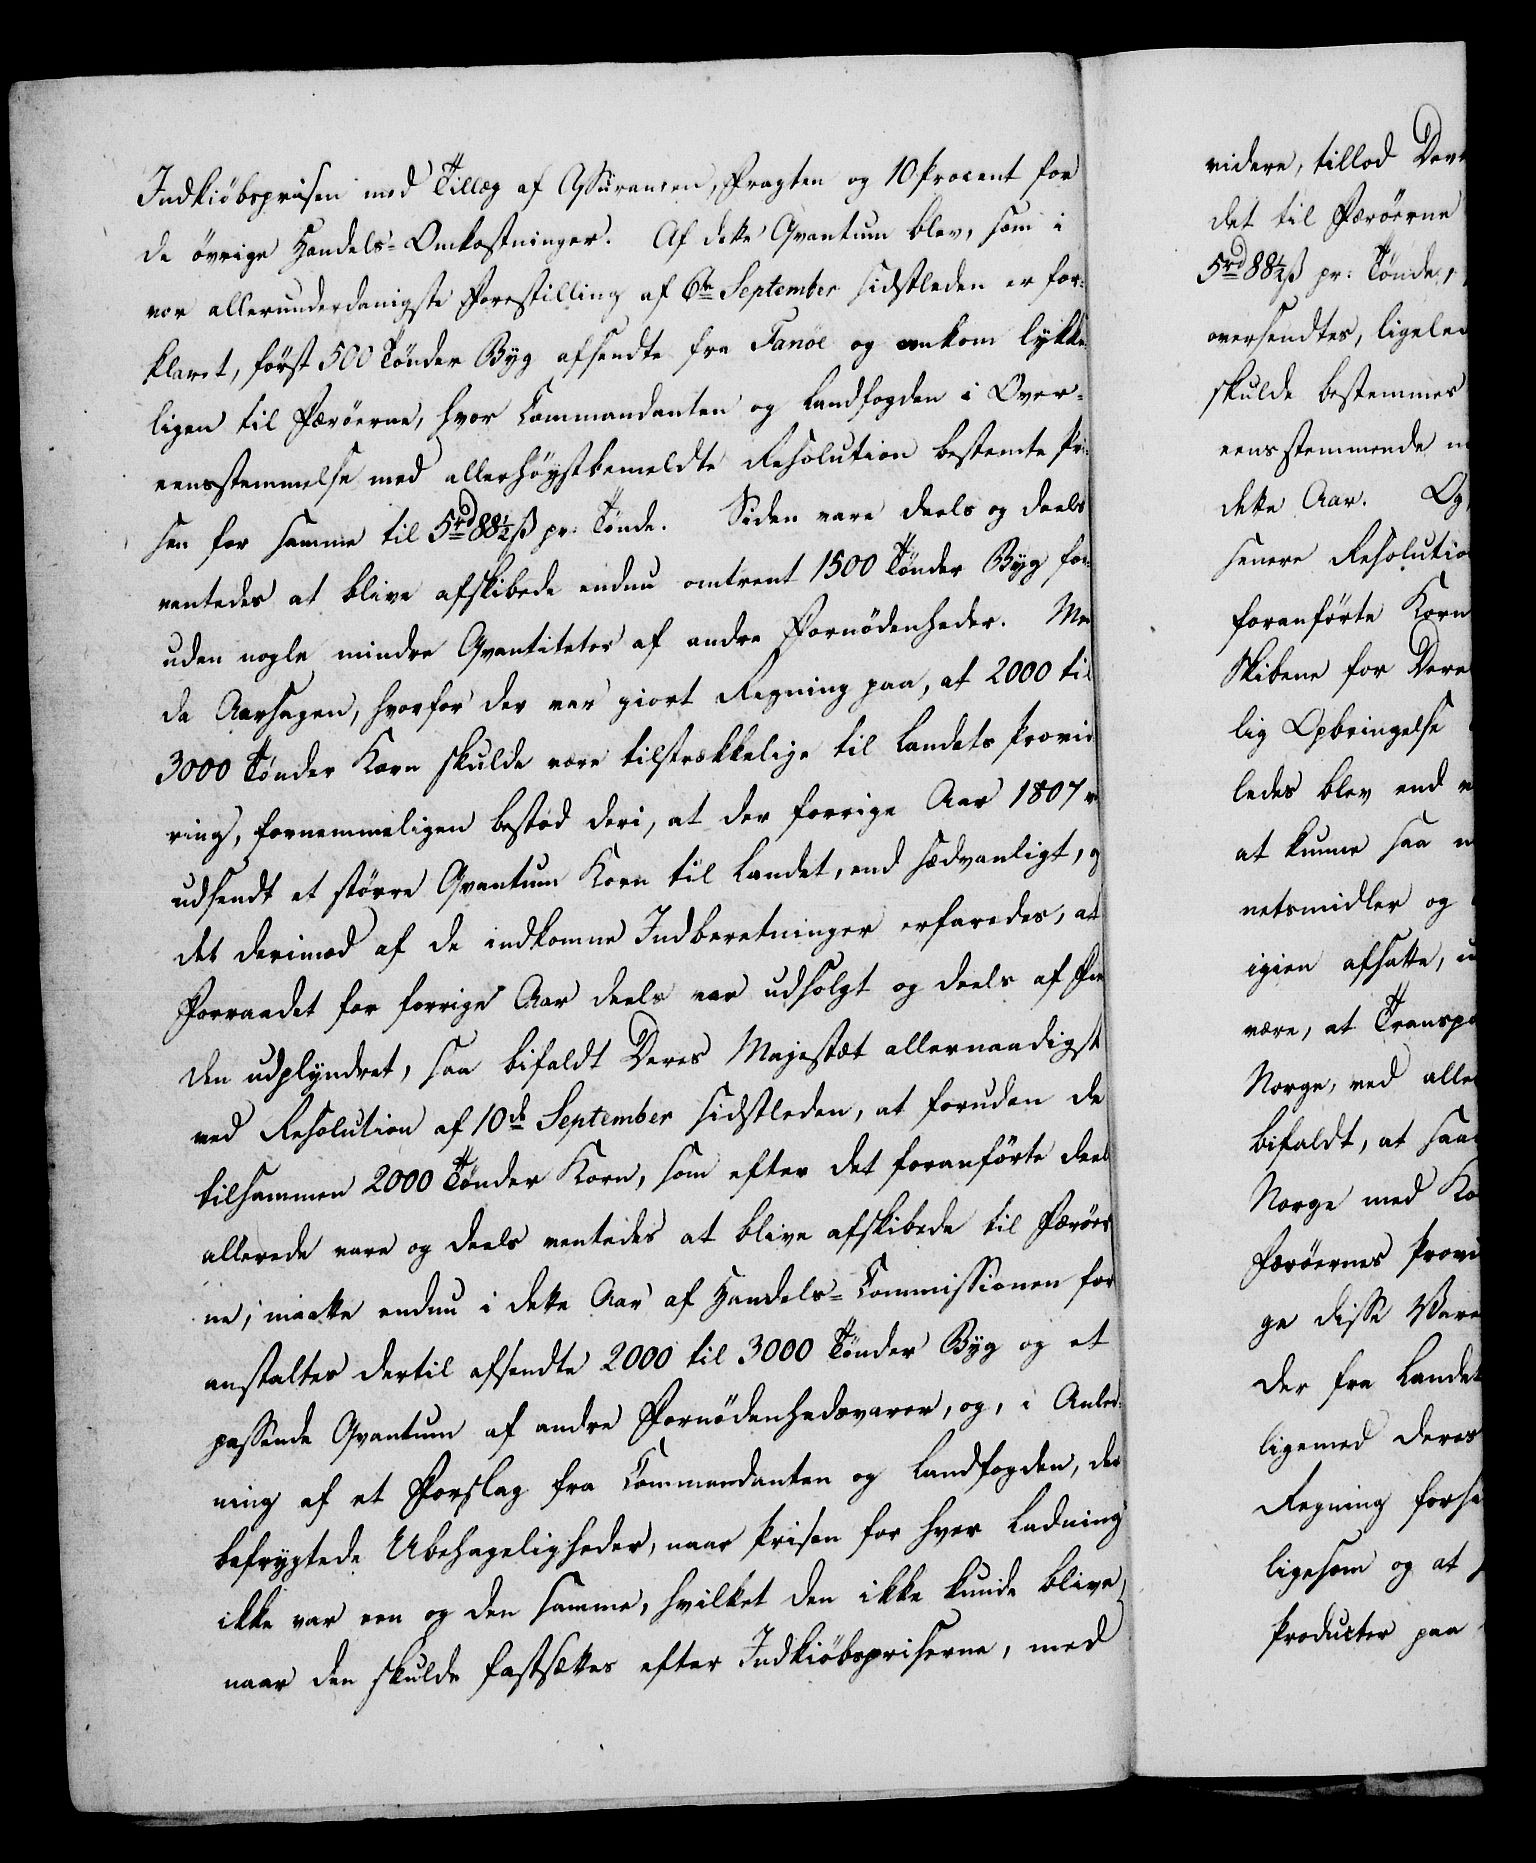 Indkiöbsprisen med Tillæg af Assürancen, Fragten og 10 Procent for
de övrige Handels-Omkostninger. Af dette Qvantum blev, som i
vor allerunderdanigste Forestilling af 6te September sidstleden er for-
klaret, först 500 Tönder Byg afsendte fra Fanöe og ankom lykke
ligen til Færöerne, hvor Commandanten og Landfogden i Over-
eensstemmelse med allerhöystbemeldte Resolution bestemte Pri-
sen for samme til 5rd 88½ß pr: Tönde. Siden vare deels og deels
ventedes at blive afskibede endnu omtrent 1500 Tönder Byg for-
uden nogle mindre Qvantiteter af andre Fornödenheder. Men
da Aarsagen, hvorfor der var giort Regning paa, at 2000 til
3000 Tönder Korn skulde være tilstrækkelige til Landets Provide
ring, fornemmeligen bestod deri, at der forrige Aar 1807 v
udsendt et större Qvantum Korn til Landet, end sædvanligt, og
det derimod af de indkomne Indberetninger erfaredes, at
Forraadet for forrige Aar deels var udsolgt og deels af Fien
den udplyndret, saa bifaldt Deres Majestæt allernaadigst
ved Resolution af 10de September sidstleden, at foruden de
tilsammen 2000 Tönder Korn, som efter det foranförte deels
allerede vare og deels ventedes at blive afskibede til Færöer
ne, maatte endnu i dette Aar af Handels-Commissionen for
anstaltes dertil afsendte 2000 til 3000 Tönder Byg og et
passende Qvantum af andre Fornödenhedsvarer, og, i Anled-
ning af et Forslag fra Commandanten og Landfogden, der
befrygtede Ubehageligheder, naar Prisen for hver Ladning
ikke var een og den samme, hvilket den ikke kunde blive,
naar den skulde fastsættes efter Indkiöbspriserne, med
videre, tillod Dere
det til Færöerne
5rd 88½ß pr: Tönde,
oversendtes, ligeled
skulde bestemmes
eensstemmende m
dette Aar. Og
senere Resolutio
foranförte Korn
Skibene for Dere
lig Opbringelse
ledes blev end v
at kunne saa m
netsmidler og
igien afsatte, u
være, at Transpo
Norge, ved alle
bifaldt, at saa
Norge med Ko
Færöernes Provi
ge disse Vare
der fra Landet
ligemed Deres
Regning forsk
ligesom og at
Producter paa